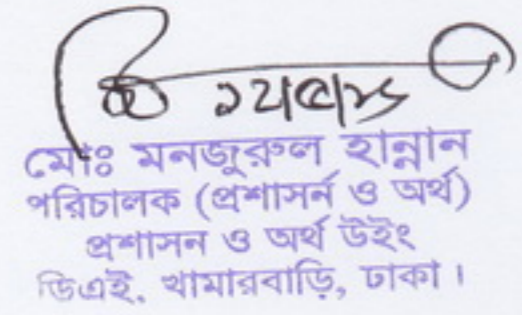 মোঃ মনজুরুল হান্নান
পরিচালক (প্রশাসন ও অর্থ)
প্রশাসন ও অর্থ উইং
ডিএই, খামারবাড়ি, ঢাকা।